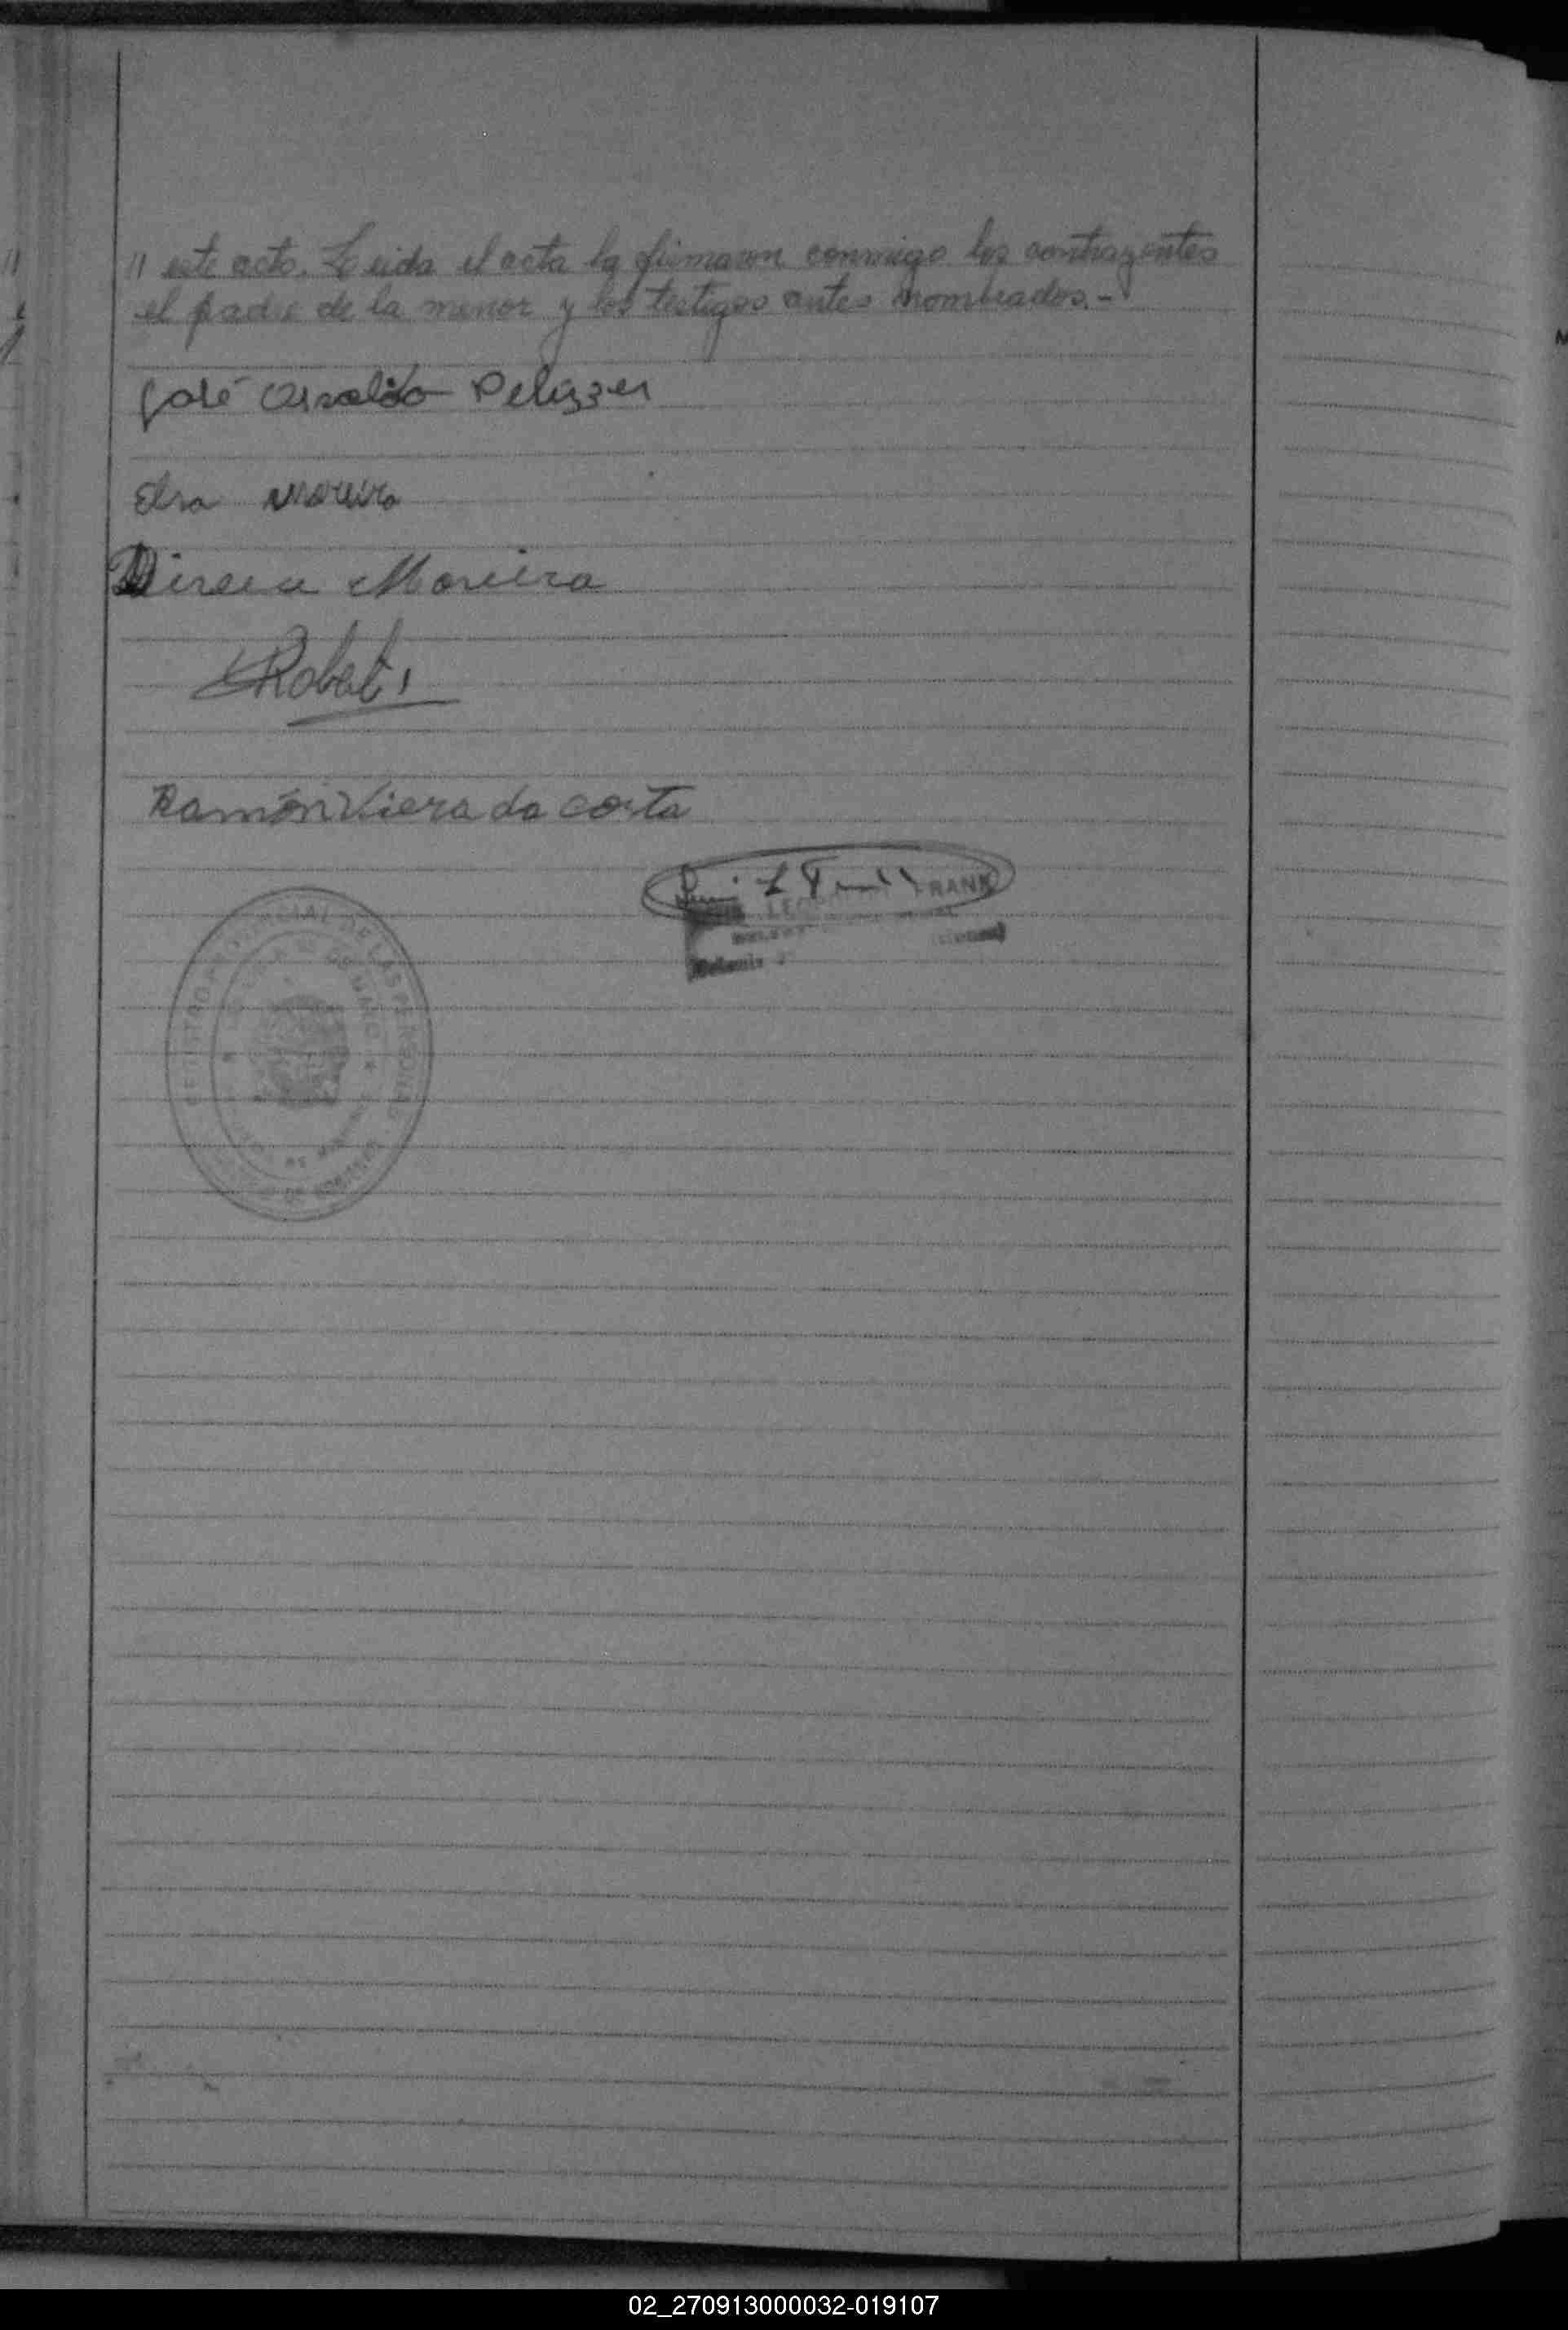 // este acto. Leida el acta la firmaron conmigo los contrayentes
el padre de la menor y los testigos antes nombrados.-
José Osvaldo Pelizzer
Elsa Moreira
Moreira
Roberti
Ramón Viera da costa
FRANK
REGISTRO PROVINCIAL DE LAS PERSONAS
02_270913000032-019107